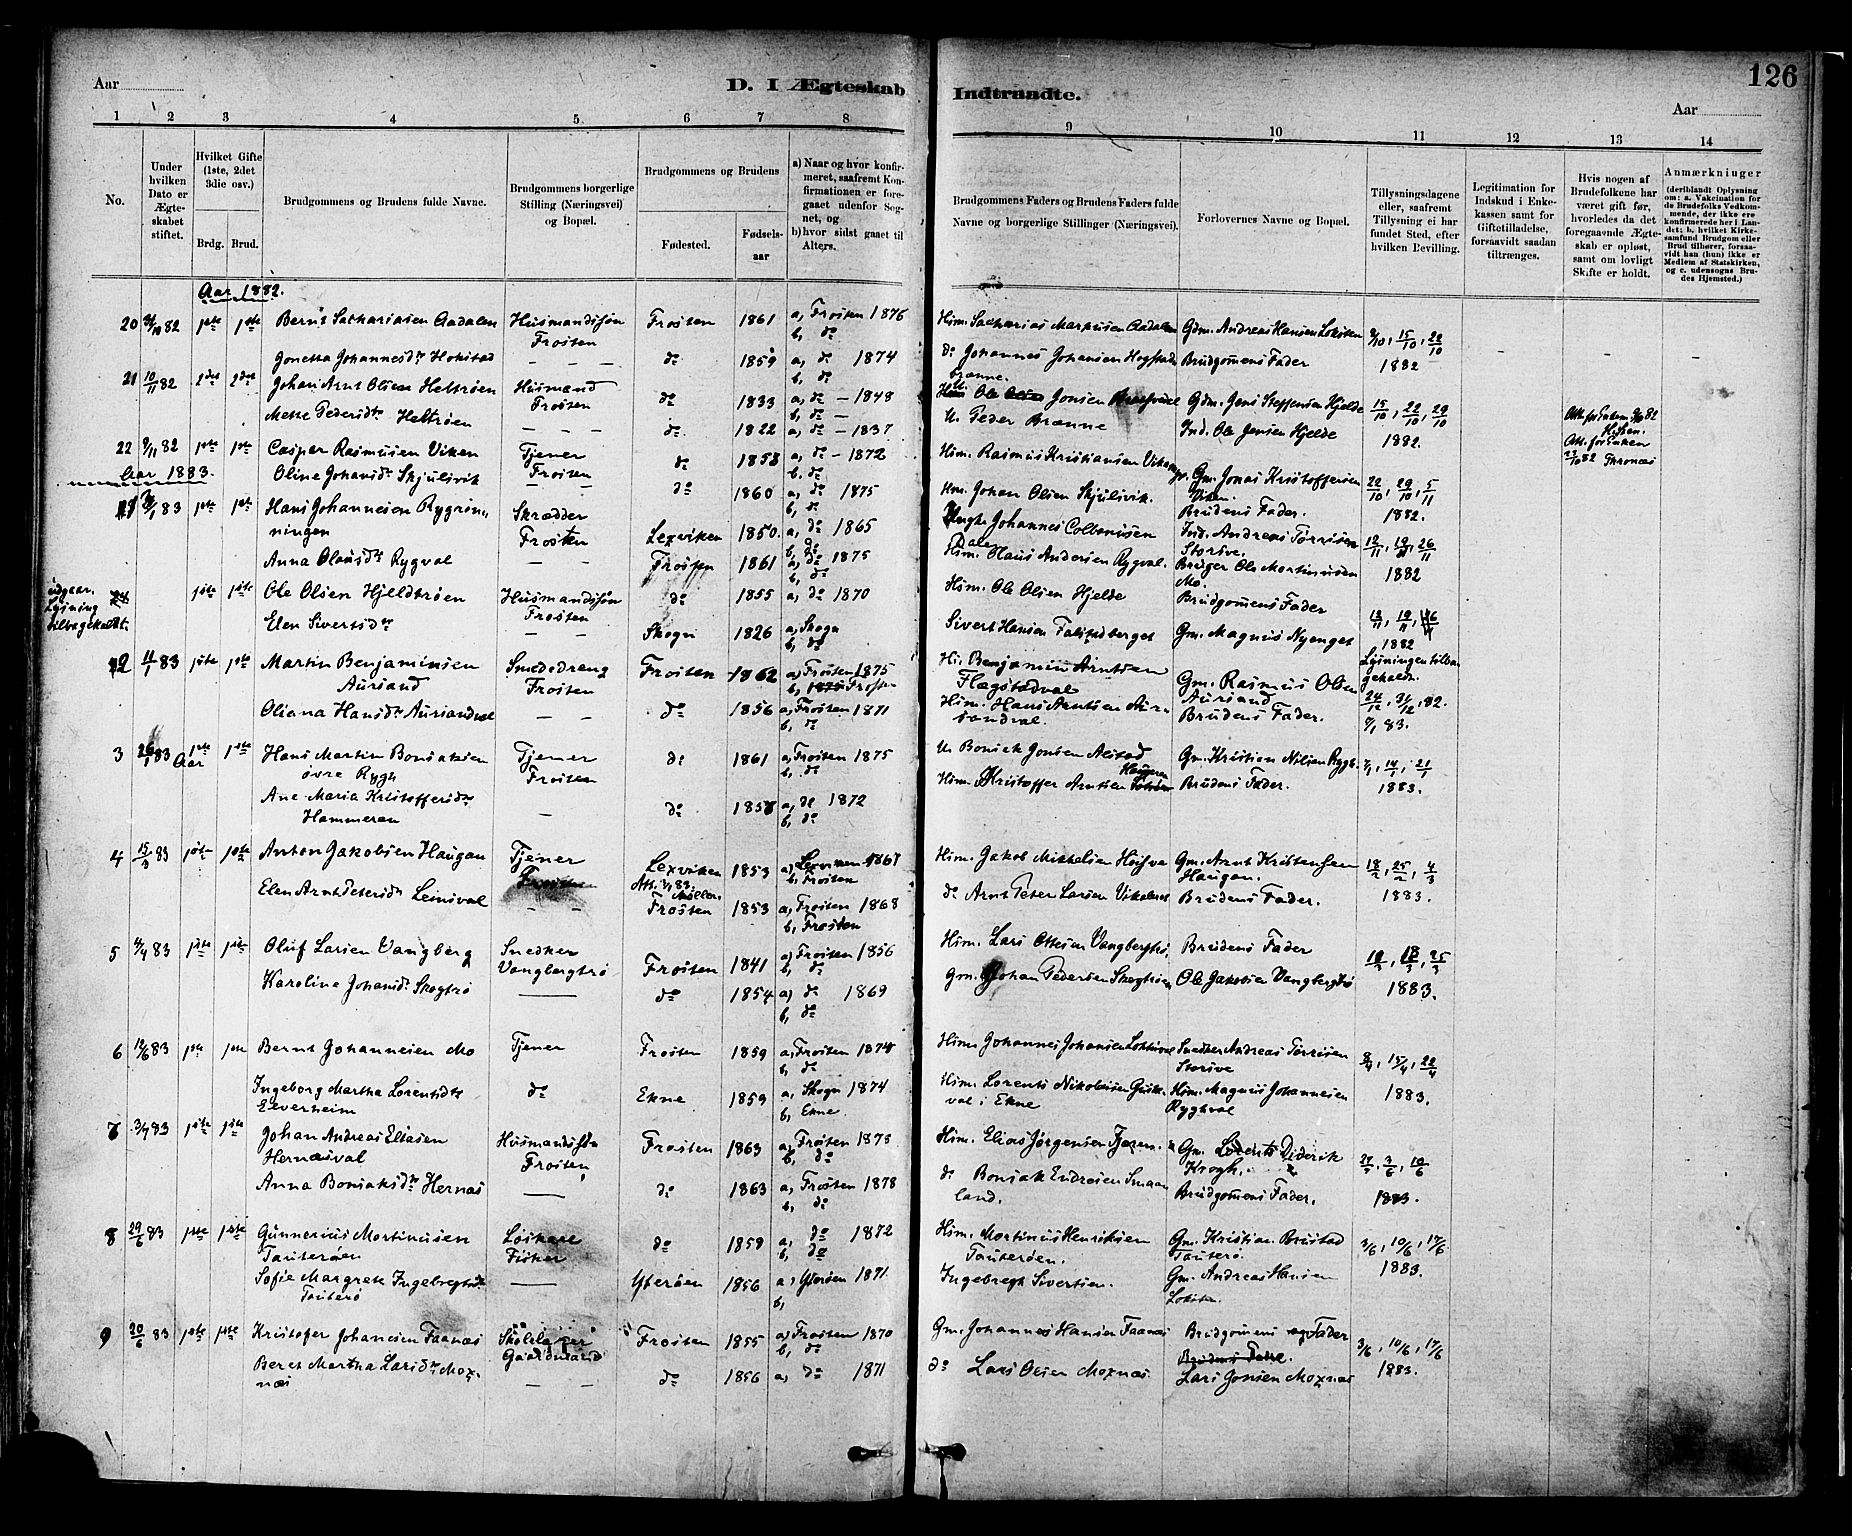 126
Aar
D. I Ægteskab Indtraadte.
Aar
1 2 3 4 5 6 7 8 9 10 11 12 13 14
No.
Under hvilken Dato er Ægteskabet stiftet.
Hvilket Gifte (1ste, 2det 3die osv.)
Brdg. Brud.
Brudgommens og Brudens fulde Navne.
Brudgommens borgerlige Stilling (Næringsvei) og Bopæl.
Brudgommens og Brudens
Fødested.
Fødsels-aar
a) Naar og hvor konfirmeret, saafremt Konfirmationen er foregaaet udenfor Sognet, og
b) hvor sidst gaaet til Alters.
Brudgommens Faders og Brudens Faders fulde Navne og borgerlige Stillinger (Næringsvei).
Forlovernes Navne og Bopæl.
Tillysningsdagene eller, saafremt Tillysning ei har fundet Sted, efter hvilken Bevilling.
Legitimation for Indskud i Enkekassen samt for Giftetilladelse, forsaavidt saadan tiltrænges.
Hvis nogen af Brudefolkene har været gift før, hvorledes da det foregaaende Ægteskab er opløst, samt om lovligt Skifte er holdt.
Anmærkninger (deriblandt Oplysning om: a. Vakcination for de Brudefolks Vedkommende, der ikke ere konfirmerede her i Landet; b. hvilket Kirkesamfund Brudgom eller Brud tilhører, forsaavidt han (hun) ikke er Medlem af Statskirken, og c. udensogns Brudes Hjemsted.)
Aar 1882.
20 82 1ste 1ste Bernt Sakariasen Aadalen Husmandssøn Frosten Frosten 1861 a, Frosten 1876 b, do Husm. Sakarias Markusen Aadalen Gdm. Andreas Hansen Loksten 8/10, 15/10, 22/10 1882
Jonetta Johannesdtr Hokstad — — do 1859 a, do 1874 b, do do Johannes Johansen Brudgomens Fader
21 10/11 82 2det 2det Johan Arnt Olsen Heltrøen Husmand Frosten do 1833 a, do — 1848 b, do — Ole Jonsen Gdm. Jens Steffensen Hjelde 15/10, 22/10, 29/10 1882.
Mette Pedersdtr Heltrøen — — — do 1822 a, do — 1837 U. Peder Brænne Ind. Ole Jensen Hjelde
22 9/11 82 1ste 1ste Casper Rasmusen Viken Tjener Frosten do 1858 a, do — 1872 b, do Husm. Rasmus Kristiansen Viken Gm. Jonas Kristoffersen Viken. 22/10, 29/10, 5/11 1882.
Oline Johansdtr Skjulsvik — — do 1860 a, do 1875 b, do Hm. Johan Olsen Skjulsvik. Brudens Fader.
Aar 1883.
1 83 1ste 1ste Hans Johannesen Rygrønningen Skrædder Frosten Lexviken 1850. a, do 1865 b, do Johannes Colbenusen Dalen Ind. Andreas Tørrisen Storsve. 12/11, 19/11, 26/11 1882
Anna Olausdtr Rygval — — Frosten 1861 a, do 1875 b, do Husm. Olaus Andersen Rygval. Bruger Ole Martinusen Mo.
udgaar. Lysning tilbagekaldt. 1ste 1ste Ole Olsen Hjeldtrøen Husmandssøn Frosten do 1855 a, do 1870 Husm. Ole Olsen Hjelde Brudgomens Fader 1882 Lysningen tilbagekaldt.
Elen Sivertsdtr — — Skogn 1826 a, Skogn b, do Sivert Hansen Falstadberget Gm. Magnus Nyenget
2 4/1 83 1ste 1ste Martin Benjaminsen Aursand Smededreng Frosten Frosten 1862 a, Frosten 1875 b, Frosten Hus. Benjamin Arntsen Flægstadval Gm. Rasmus Olsen Aursand 24/12, 31/12, 82. 7/1 83.
Oliana Hansdtr Aursandval — — do 1856 a, Frosten 1871 b, do Husm. Hans Arntsen Aursandval. Brudens Fader.
3 26/1 83 1ste 1ste Hans Martin Bonsaksen øvre Rygh Tjener Frosten do 1861 a, Frosten 1875 b, do U. Bonsak Jonsen Alstad Gm. Kristian Nilsen Rygh. 7/1, 14/1, 21/1 1883.
Ane Maria Kristoffersdtr Hammeren — do a, do 1872 b, do Husm. Kristoffer Arntsen Brudens Fader.
4 15/3 83 1ste 1ste Anton Jakobsen Haugan Tjener Frosten Lexviken 1853 a, Lexviken 1867 b, Frosten Husm. Jakob Mikkelsen Gm. Arnt Kristensen Haugan. 18/2, 25/2, 4/3 1883.
Elen Arnt Petersdtr Leinsval — — Frosten 1853 a, Frosten 1868 b, Frosten do Arnt Peter Larsen Brudens Fader.
5 4/4 83 1ste 1ste Oluf Larsen Vangberg Snedker Vangbergtrø Frosten 1841 a, Frosten 1856 b, do Husm. Lars Ottesen Vangbergtrø, Brudens Fader 18/3, 25/3 1883.
Karoline Johansdtr Skogtrø — do 1854 a, do 1869 b, do Gm. Johan Pedersen Skogtrøen Ole Jakobsen Vangbergtrø
6 12/6 83 1ste 1ste Bernt Johannesen Mo Tjener Frosten 1859 a, Frosten 1874 b, do Husm. Johannes Johansen Snedker Andreas Tørrisen Storsve 8/4, 15/4, 22/4 1883.
Ingeborg Martha Lorentsdtr do Ekne 1859 a, Skogn 1874 b, Ekne. Husm. Lorents Nikolaisen i Ekne Husm. Magnus Johannesen Ryghval
7 3/7 83 1ste 1ste Johan Andreas Eliasen Hernæsval Husmandssøn Frosten Frosten 1863 a, Frosten 1878 b, do Husm. Elias Jørgensen Gm. Lorents Diderik Krogh. 27/5, 3/6, 10/6 1883.
Anna Bonsaksdtr Hernæs — do 1863 a, Frosten 1878 b, do do Bonsak Endresen Smaaland. Brudgomens Fader.
8 29/6 83 1ste 1ste Gunnerius Mortinusen Tauterøen Løskarl Fisker do 1859 a, do 1872 b, do Husm. Mortinus Henriksen Tauterøen. Gm. Kristian Brustad Tauterø. 3/6, 10/6, 17/6 1883.
Sofie Margrete Ingebregtsdtr Tauterø — Ytterøen 1856 a, Ytterøen 1871 b, Ingebregt Sivertsen. Gm. Andreas Hansen Loksten.
9 20/6 83 1ste 1ste Kristofer Johannesen Faanæs Skolelærer Gaardmand Frosten 1855 a, Frosten 1870 b, do Gm. Johannes Hansen Faanæs Brudgomens Fader 3/6, 10/6, 17/6 1883.
Beret Martha Larsdtr Moxnæs — — do 1856 a, do 1871 do Lars Olsen Moxnæs Lars Jonsen Moxnæs